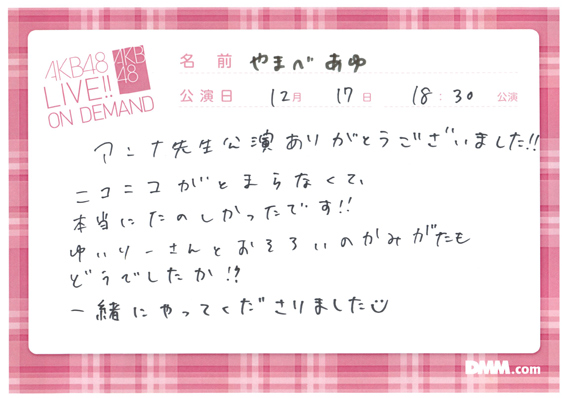 AKB48
LIVE!!
ON DEMAND
AKB
48
名前 やまべあゆ
公演日 12月 17日 18:30 公演
アンナ先生公演ありがとうございました!!
ニコニコがとまらなくて、
本当にたのしかったです!!
ゆいりーさんとおそろいのかみがたも
どうでしたか!?
一緒にやってくださりました
DMM.com